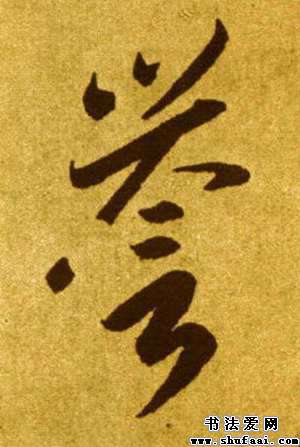 誉
书法爱网
www.shufaai.com